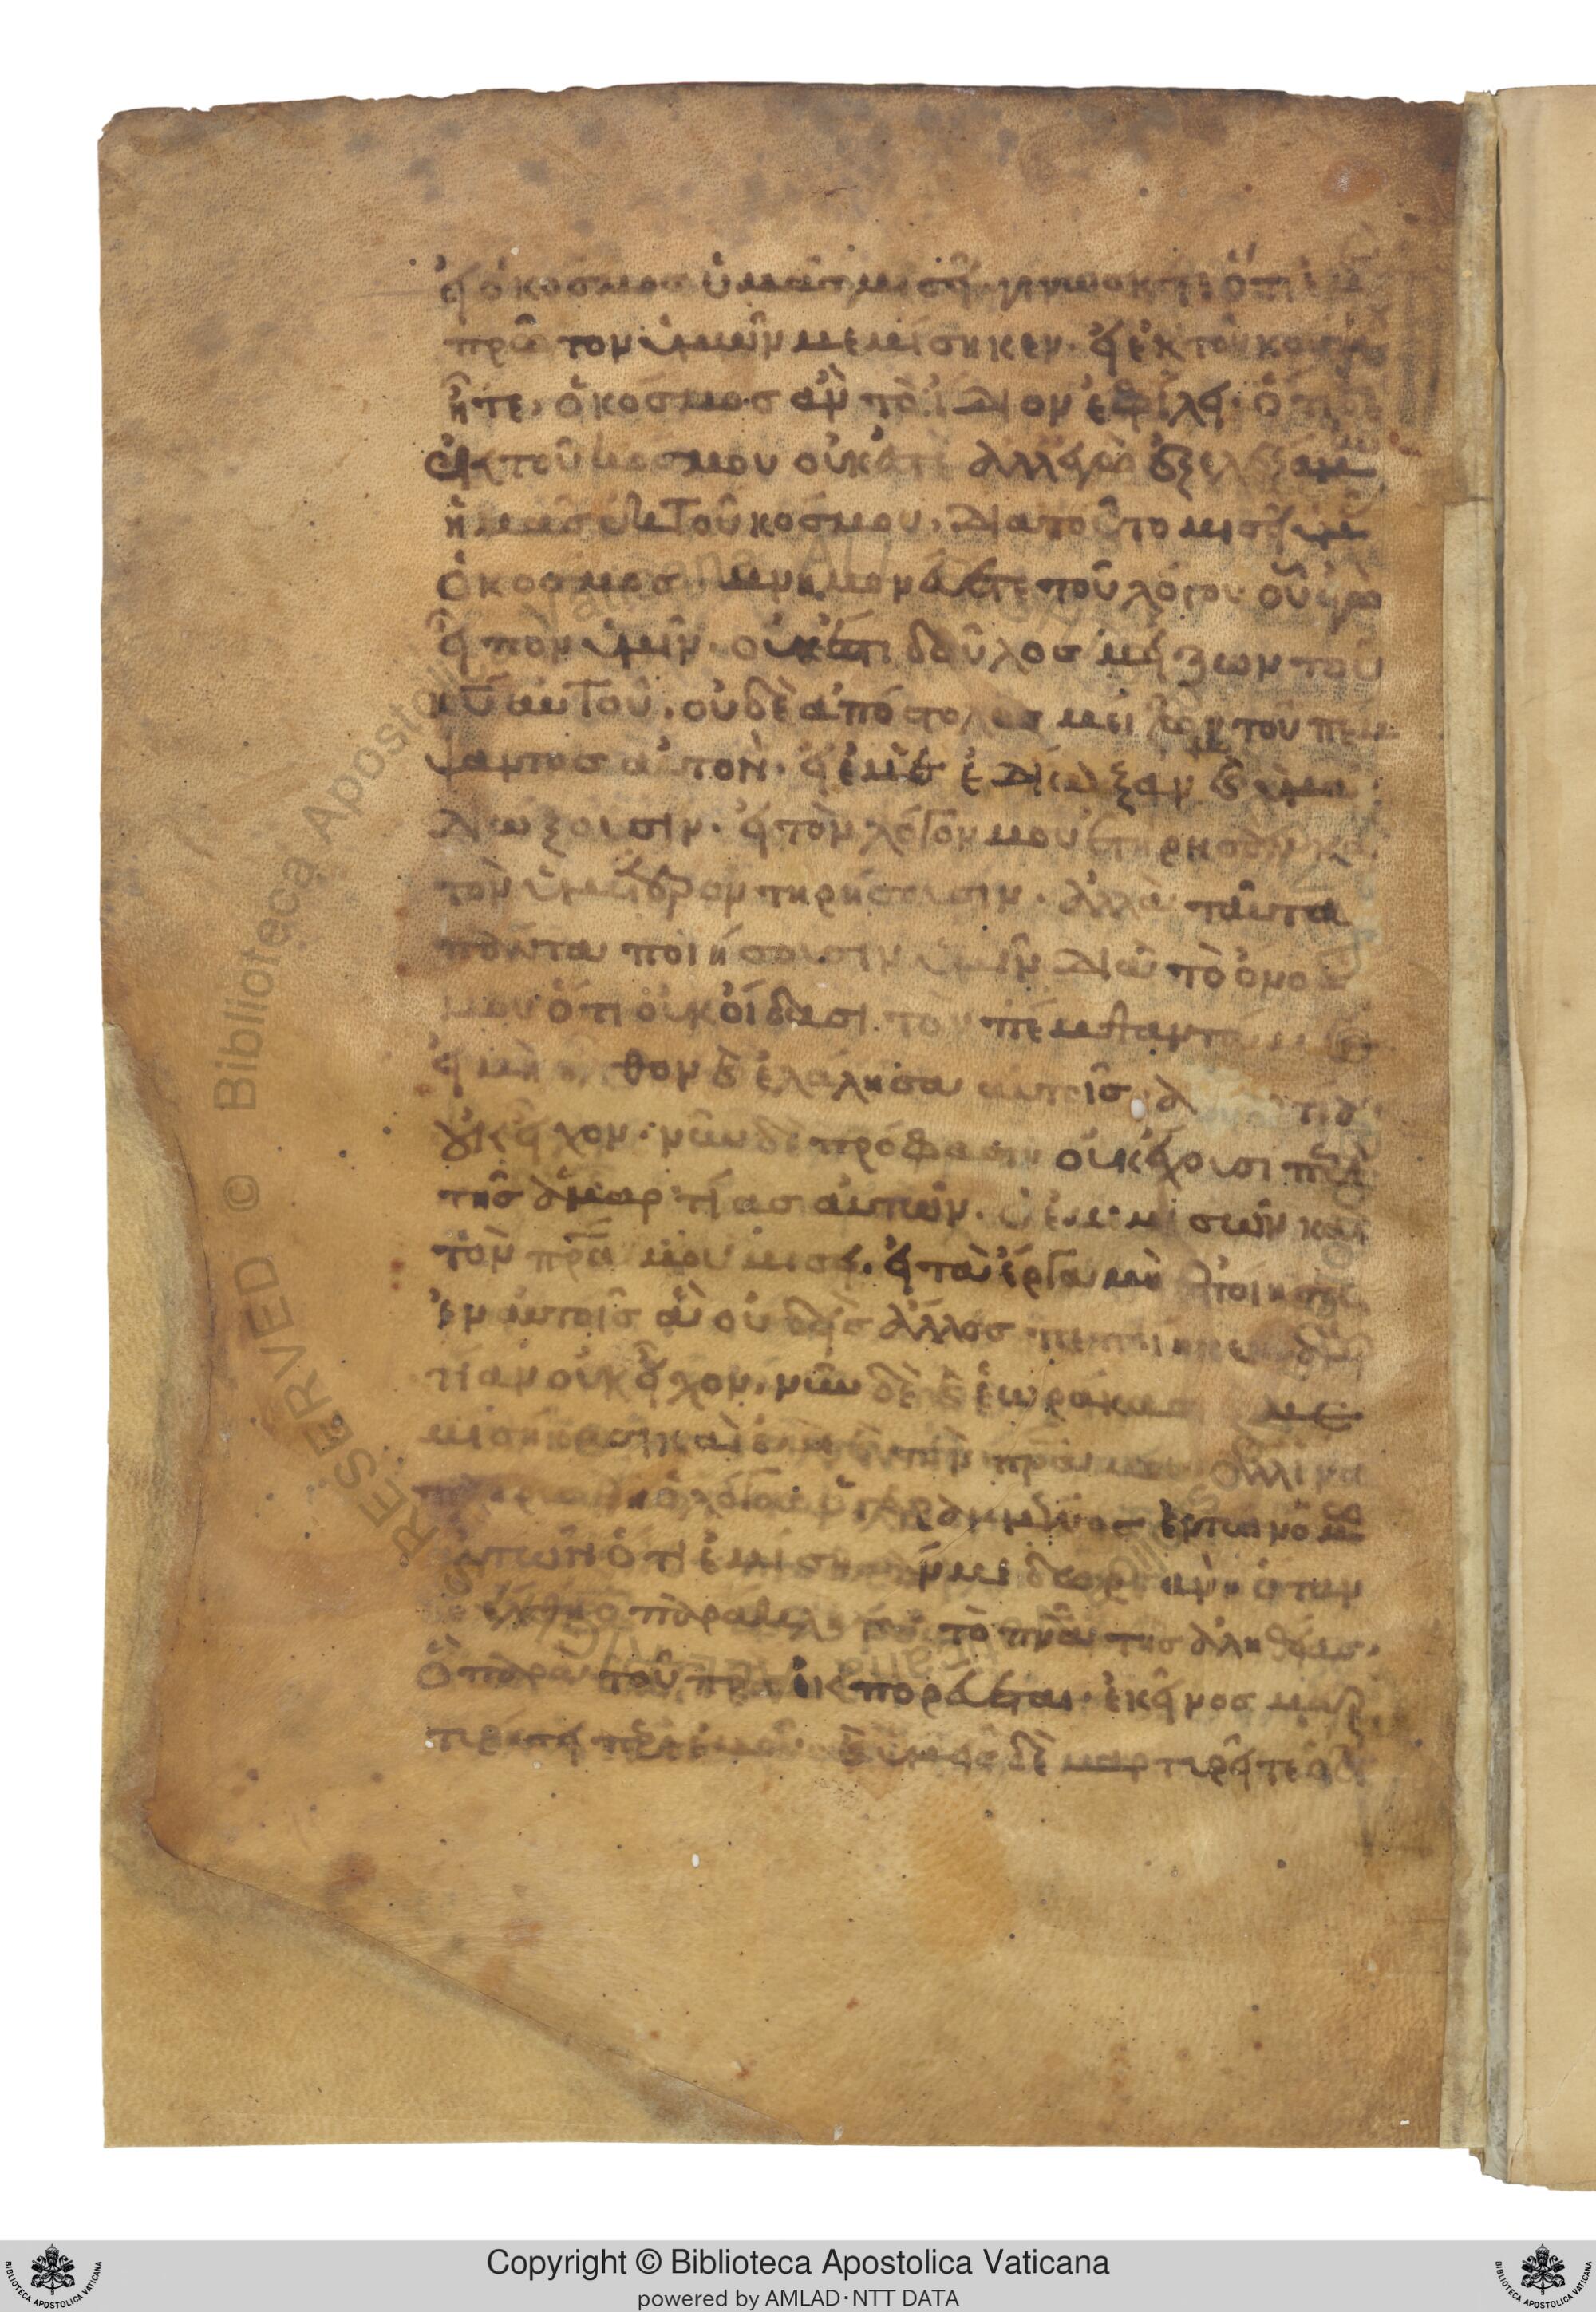 εἰ ὁ κόσμος ὑμᾶς μισεῖ, γινώσκετε ὅτι ἐμὲ
πρῶτον ὑμῶν μεμίσηκεν. εἰ ἐκ τοῦ κόσμου
ἦτε, ὁ κόσμος ἂν τὸ ἴδιον ἐφίλει. ὅτι δὲ
ἐκ τοῦ κόσμου οὐκ ἐστὲ ἀλλ' ἐγὼ ἐξελεξάμην
ὑμᾶς ἐκ τοῦ κόσμου, διὰ τοῦτο μισεῖ ὑμᾶς
ὁ κόσμος. μνημονεύετε τοῦ λόγου οὗ ἐγὼ
εἶπον ὑμῖν. οὐκ ἔστι δοῦλος μείζων τοῦ
κυ αὐτοῦ, οὐδὲ ἀπόστολος μείζων τοῦ πέμ
ψαντος αὐτόν. εἰ ἐμὲ ἐδίωξαν καὶ ὑμᾶς
διώξουσιν. εἰ τὸν λόγον μου ἐτήρησαν καὶ
τὸν ὑμέτερον τηρήσουσιν. ἀλλὰ ταῦτα
πάντα ποιήσουσιν ὑμῖν διὰ τὸ ὄνομά
μου ὅτι οὐκ οἴδασι τὸν πέμψαντά με
εἰ μὴ ἦλθον καὶ ἐλάλησα αὐτοῖς
οὐκ εἶχον. νῦν δὲ πρόφασιν οὐκ ἔχουσι περὶ
τῆς ἁμαρτίας αὐτῶν. ὁ ἐμὲ μισῶν καὶ
τὸν πρα μου μισεῖ. εἰ τὰ ἔργα μὴ ἐποίησα
ἐν αὐτοῖς ἃ οὐδεὶς ἄλλος πεποίηκεν ἁμαρ
τίαν οὐκ εἶχον. νῦν δὲ καὶ ἑωράκασι καὶ με
μισήκασι καὶ ἐμὲ καὶ τὸν πρα μου ἀλλ' ἵνα
πληρωθῇ ὁ λόγος ὁ γεγραμμένος ἐν τῷ νόμῳ
αὐτῶν ὅτι ἐμίσησάν με δωρεάν. ὅταν
δὲ ἔλθῃ ὁ παράκλητος τὸ πνα τῆς ἀληθείας.
ὃ παρὰ τοῦ πρς ἐκπορεύεται. ἐκεῖνος μαρ
τυρήσει περὶ ἐμοῦ καὶ ὑμεῖς δὲ μαρτυρεῖτε ὅτι